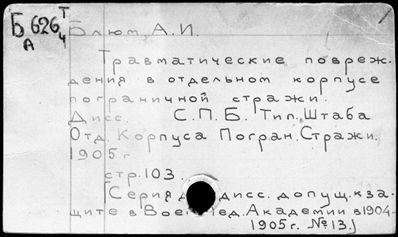 Б 626 Т
А Ч
Блюм, А.И.
Травматические повреж-
дения в отдельном корпусе
пограничной стражи.
Дисс. С.П.Б. Тип. Штаба
Отд. Корпуса Погран. Стражи.
1905 г
стр. 103.
[Серия дисс. допущ. к за-
щите в Воен. Мед. Академии в 1904-
1905 г. № 13.]